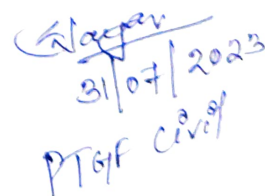 Sagar
31/07/2023
PTGF Civil